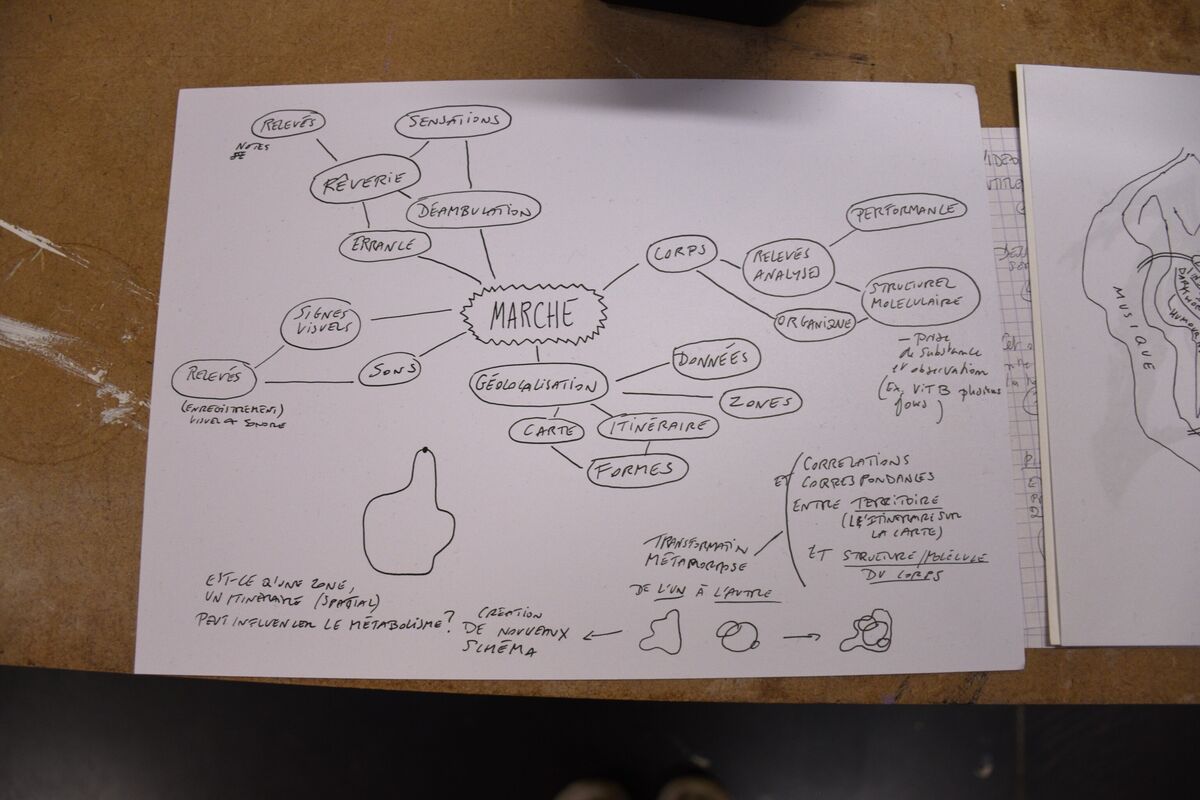 RELEVÉS
NOTES
SENSATIONS
RÊVERIE
DÉAMBULATION
ERRANCE
MARCHE
CORPS
RELEVÉS
ANALYSES
PERFORMANCE
STRUCTUREL
MOLECULAIRE
ORGANIQUE
— prise
de substance
et observation
(Ex, VIT B plusieurs
jours)
SIGNES
VISUELS
SONS
RELEVÉS
(ENREGISTREMENT)
VISUEL & SONORE
GÉOLOCALISATION
DONNÉES
ZONES
CARTE
ITINÉRAIRE
FORMES
CORRELATIONS
ET CORRESPONDANCES
ENTRE TERRITOIRE
(L'ITINÉRAIRE SUR
LA CARTE)
ET STRUCTURE/MOLÉCULE
DU CORPS
TRANSFORMATION
MÉTAMORPHOSE
DE L'UN À L'AUTRE
EST-CE QU'UNE ZONE,
UN ITINÉRAIRE (SPATIAL)
PEUT INFLUENCER LE MÉTABOLISME?
CRÉATION
DE NOUVEAUX
SCHÉMA
MUSIQUE